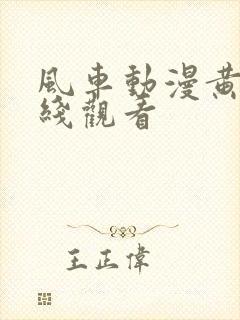 風車動漫黃
綫觀看
王正偉